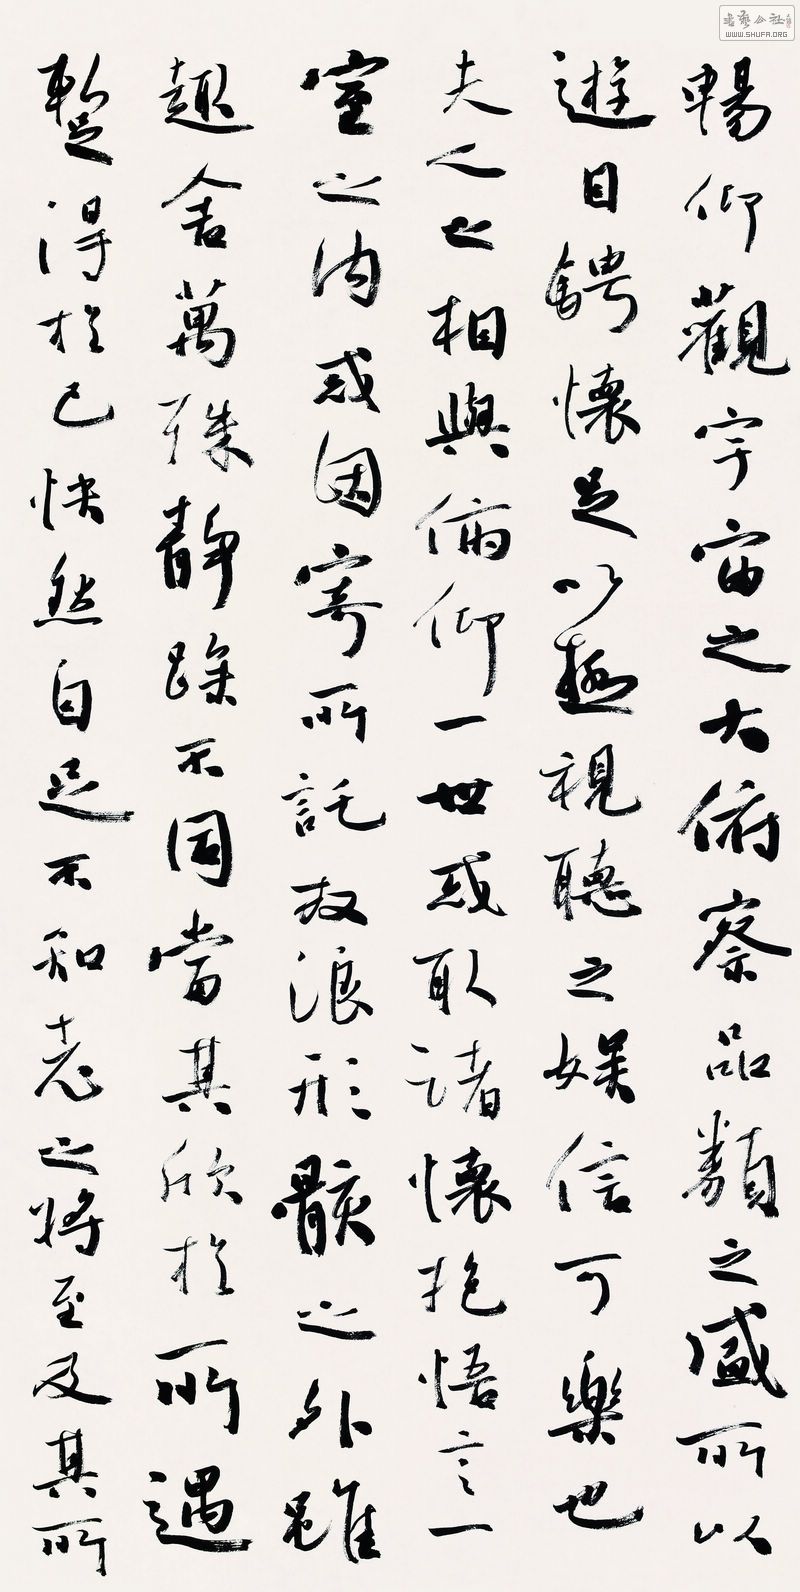 暢仰觀宇宙之大俯察品類之盛所以
遊目騁懷足以極視聽之娛信可樂也
夫人之相與俯仰一世或取諸懷抱悟言一
室之內或因寄所託放浪形骸之外雖
趣舍萬殊靜躁不同當其欣於所遇
蹔得於己快然自足不知老之將至及其所
書藝公社
WWW.SHUFA.ORG